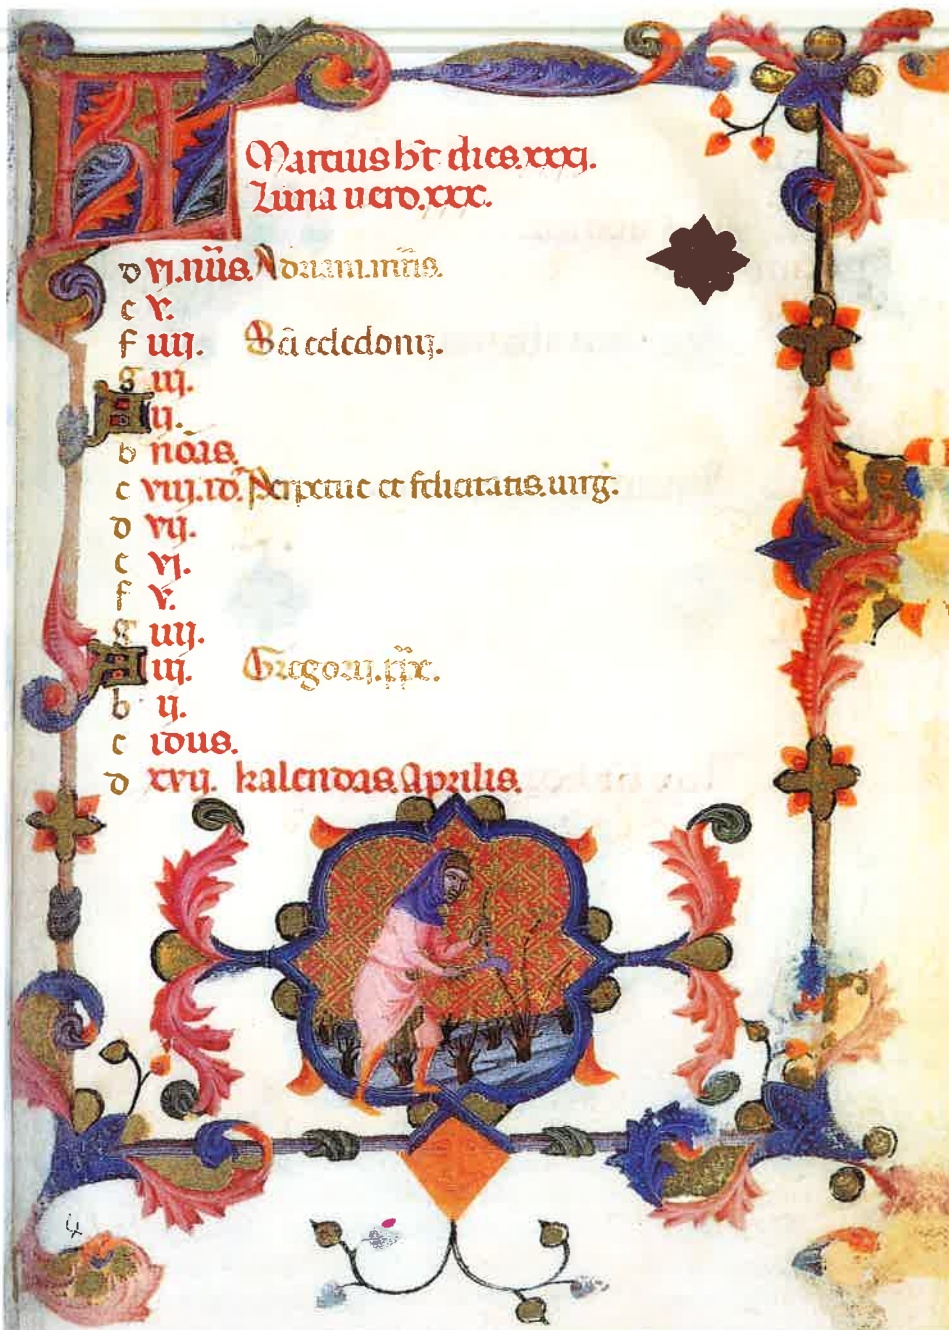 KL
Marcius h͞t dies.xxxj.
Luna uero.xxx.
d vj.nūs. Adriani.m͞ris.
e v.
f iiij. S͞ci celedonij.
g iij.
A ij.
b nonas.
c viij.id͞. Perpetue et felicitatis.uirg.
d vij.
e vj.
f v.
g iiij.
A iij. Gregorij.p͞p.
b ij.
c idus.
d xvij. kalendas Aprilis.